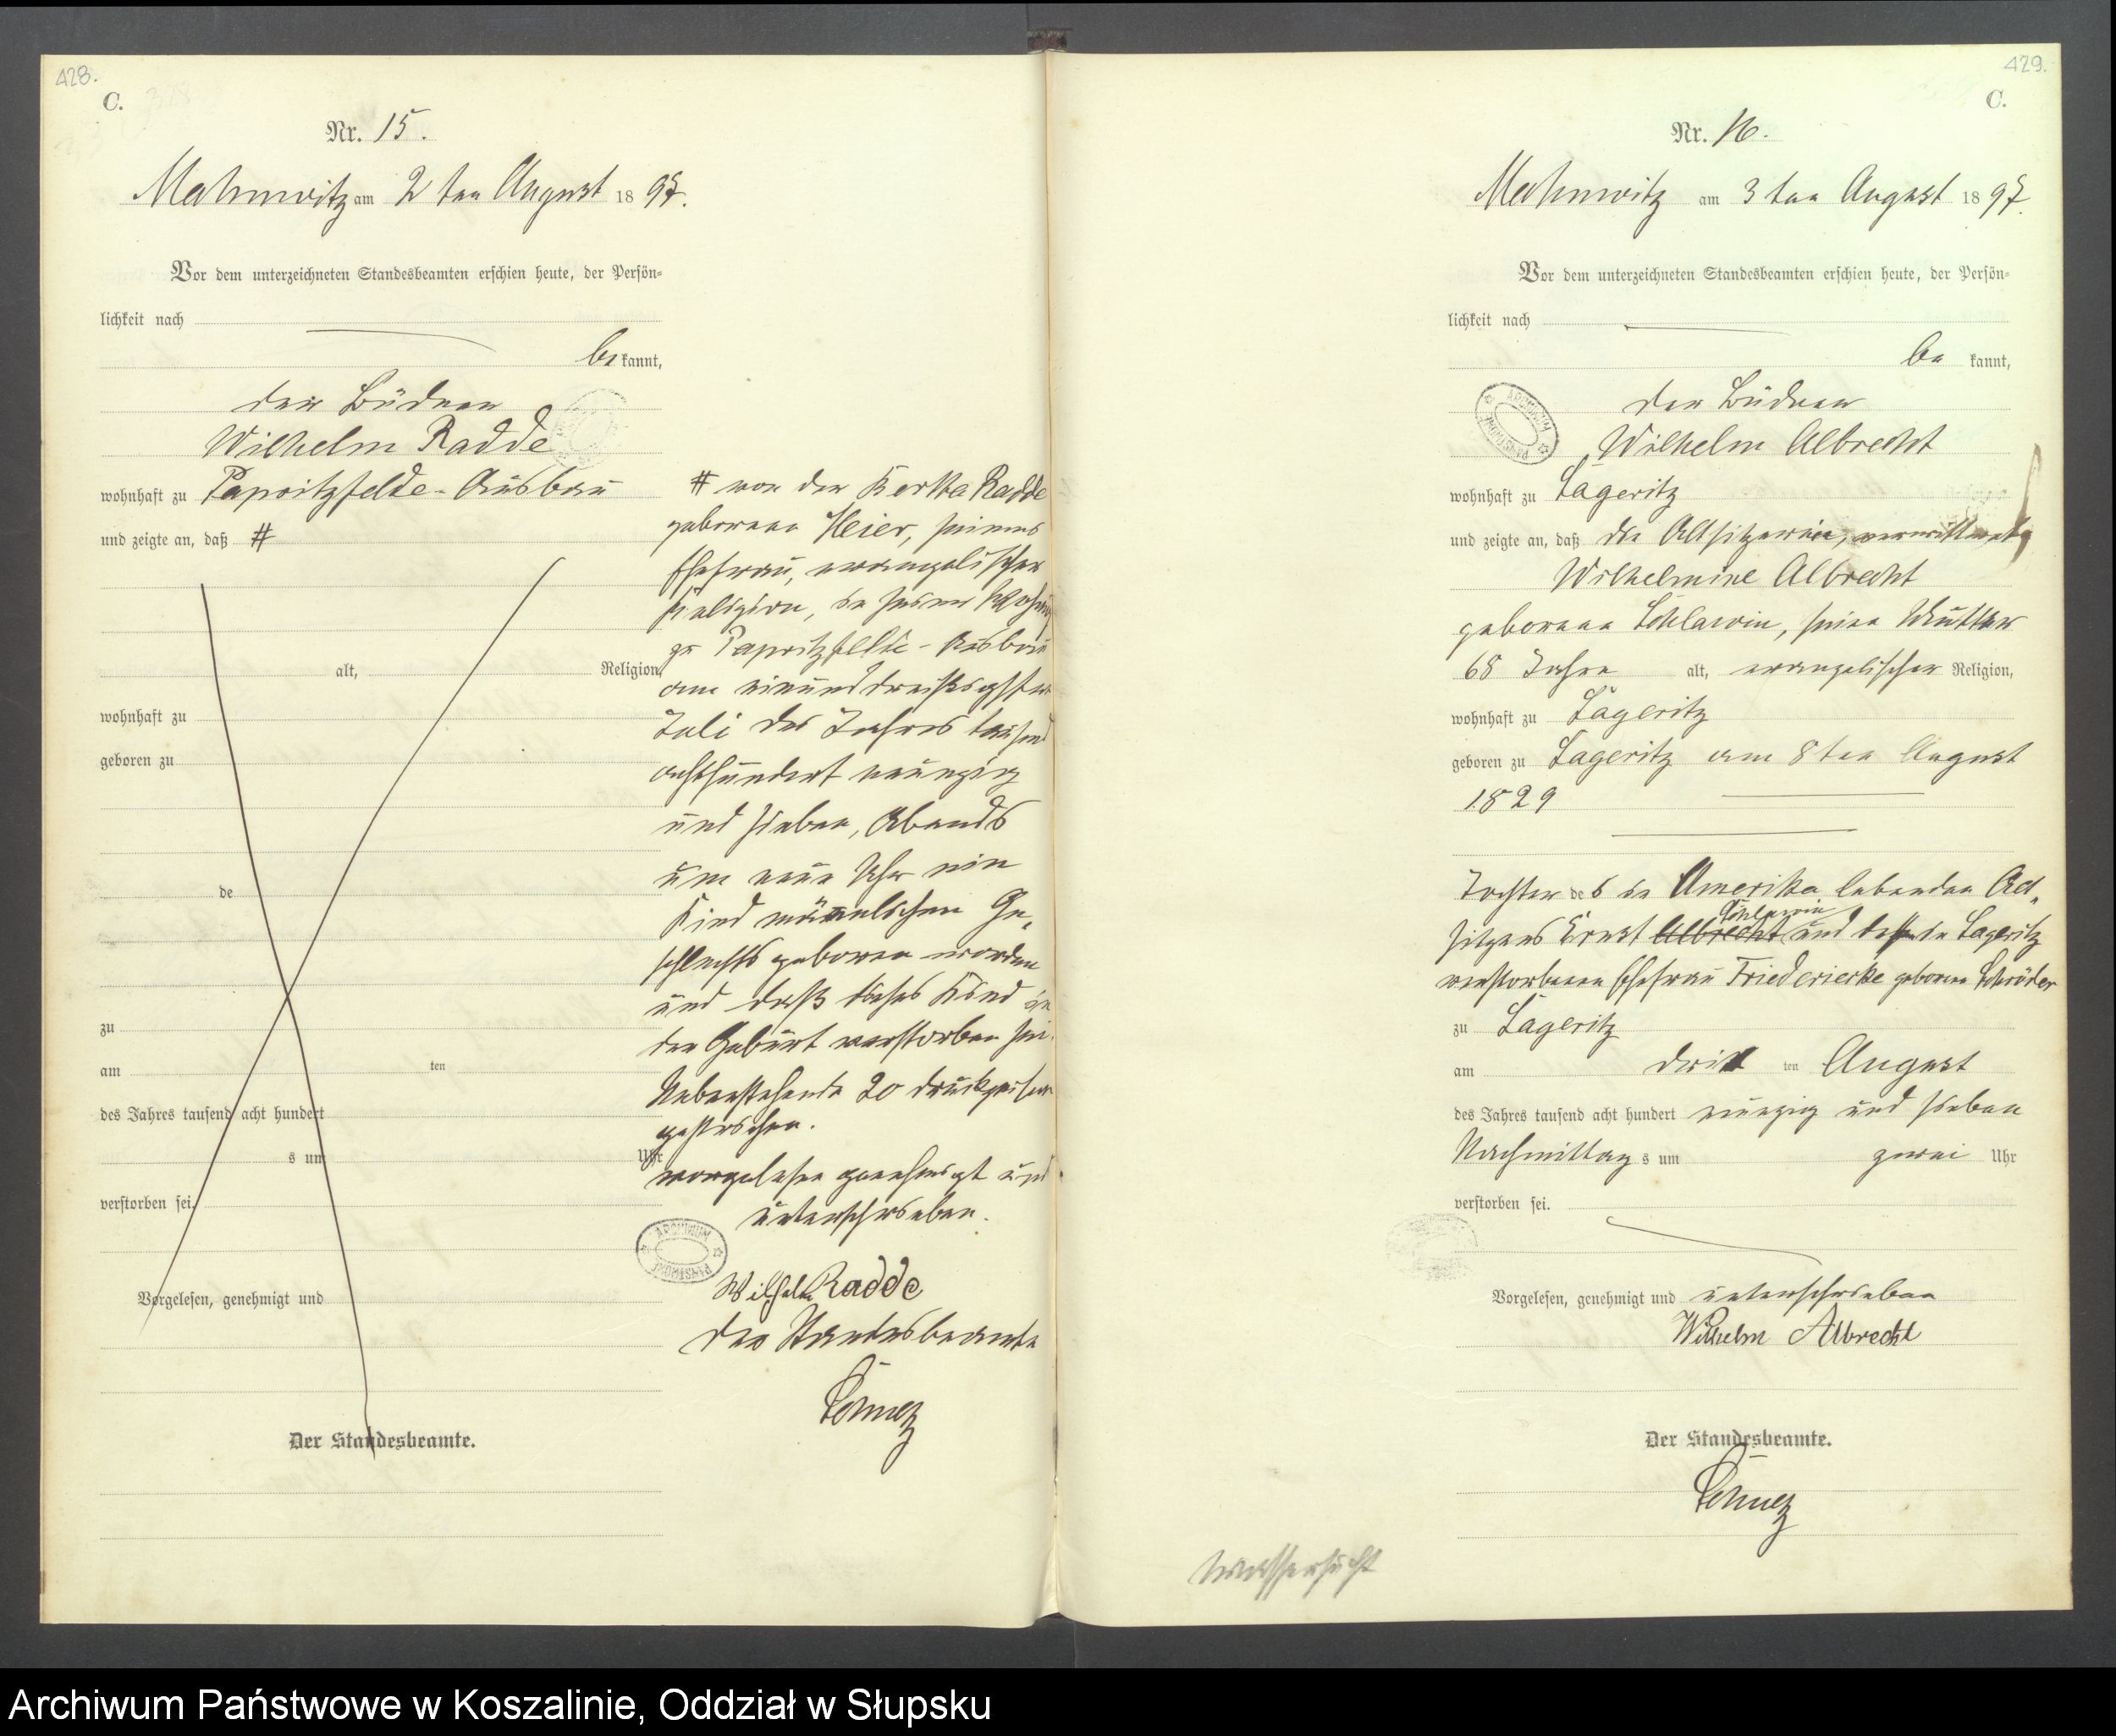 428.
C.
Nr. 15.
Mahnwitz am 2 ten August 1897.
Vor dem unterzeichneten Standesbeamten erschien heute, der Persön-
lichkeit nach
be kannt,
der Büdner
Wilhelm Radde
wohnhaft zu Papritzfelde-Ausbau
und zeigte an, daß #
alt, Religion
wohnhaft zu
geboren zu
de
zu
am ten
des Jahres tausend acht hundert
s um Uhr
verstorben sei.
Vorgelesen, genehmigt und
Der Standesbeamte.
# von der Bertha Radde
geborene Heier, seiner
Ehefrau, evangelischer
Religion, in seiner Wohnung
zu Papritzfelde-Ausbau
am einunddreißigsten
Juli des Jahres tausend
achthundert neunzig
und sieben, Abends
um neun Uhr ein
Kind männlichen Ge-
schlechts geboren worden
und daß dieses Kind in
der Geburt verstorben sei.
Nebenstehende 20 Druckzeilen
gestrichen.
vorgelesen genehmigt und
unterschrieben.
ARCHIWUM PAŃSTWOWE
Wilhelm Radde
Der Standesbeamte
429.
C.
Nr. 16.
Mahnwitz am 3 ten August 1897.
Vor dem unterzeichneten Standesbeamten erschien heute, der Persön-
lichkeit nach
be kannt,
der Büdner
ARCHIWUM PAŃSTWOWE
Wilhelm Albrecht
wohnhaft zu Lageritz
und zeigte an, daß die Altsitzerin, verwittwete
Wilhelmine Albrecht
geborene Schlawin, seine Mutter
68 Jahre alt, evangelischer Religion,
wohnhaft zu Lageritz
geboren zu Lageritz am 8 ten August
1829
Tochter des in Amerika lebenden Alt-
Schlawin
sitzers Ernst Albrecht und dessen in Lageritz
verstorbenen Ehefrau Friedericke geborene Schröder
zu Lageritz
am dritt ten August
des Jahres tausend acht hundert neunzig und sieben
Nachmittag s um zwei Uhr
verstorben sei.
Vorgelesen, genehmigt und unterschrieben
Wilhelm Albrecht
Der Standesbeamte.
Wassersucht
Archiwum Państwowe w Koszalinie, Oddział w Słupsku